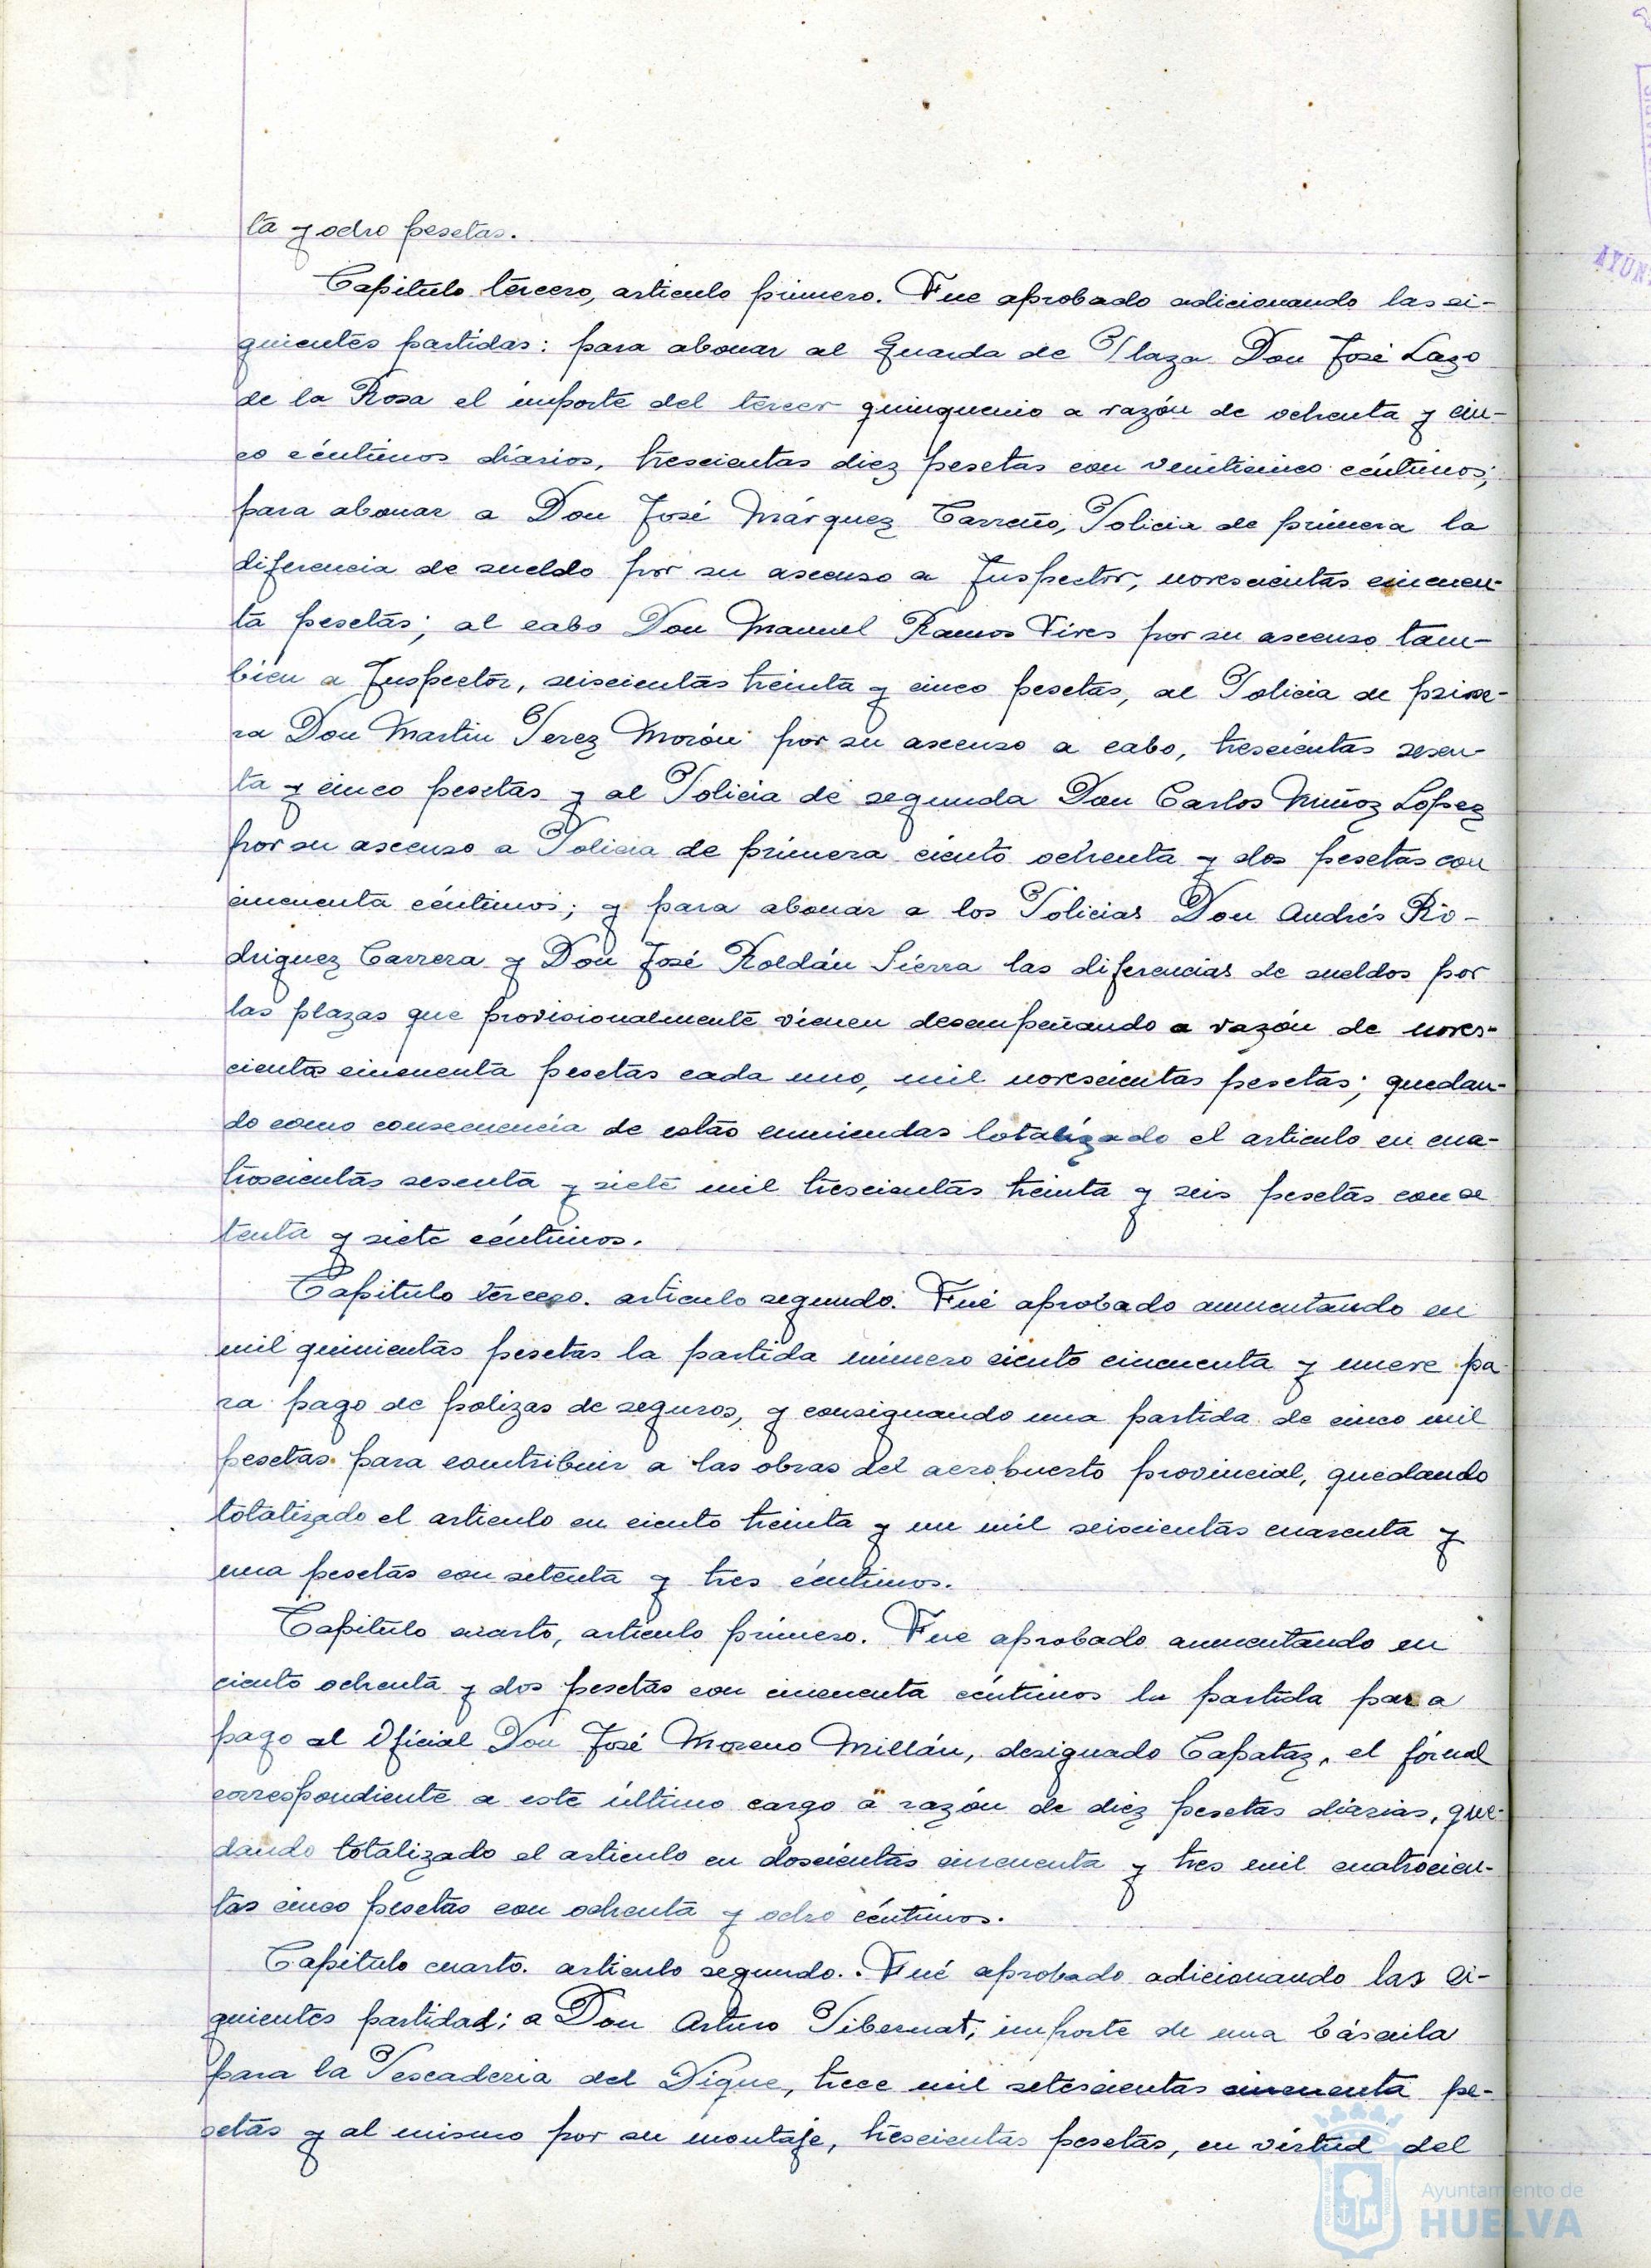 ta y ocho pesetas.
Capitulo tercero, articulo primero. Fue aprobado adicionando las si-
guientes partidas: para abonar al Guarda de Plaza Don José Lazo
de la Rosa el importe del tercer quinquenio a razón de ochenta y cin-
co céntimos diarios, trescientas diez pesetas con veinticinco céntimos;
para abonar a Don José Márquez Carreño, Policia de primera la
diferencia de sueldo por su ascenso a Inspector, novescientas cincuen-
ta pesetas; al cabo Don Manuel Ramos Vives por su ascenso tam-
bien a Inspector, seiscientas treinta y cinco pesetas, al Policia de prime-
ra Don Martin Perez Morón por su ascenso a cabo, trescientas sesen-
ta y cinco pesetas y al Policia de segunda Don Carlos Muñoz López
por su ascenso a Policia de primera ciento ochenta y dos pesetas con
cincuenta céntimos; y para abonar a los Policias Don Andrés Ro-
driguez Carrera y Don José Roldán Sierra las diferencias de sueldos por
las plazas que provisionalmente vienen desempeñando a razón de noves-
cientas cincuenta pesetas cada uno, mil novescientas pesetas; quedan-
do como consecuencia de estas enmiendas totalizado el articulo en cua-
troscientas sesenta y siete mil trescientas treinta y seis pesetas con se
tenta y siete céntimos.
Capitulo tercero. articulo segundo. Fué aprobado aumentando en
mil quinientas pesetas la partida número ciento cincuenta y nueve pa
ra pago de polizas de seguros, y consignando una partida de cinco mil
pesetas para contribuir a las obras del aeropuerto provincial, quedando
totalizado el articulo en ciento treinta y un mil seiscientas cuarenta y
una pesetas con setenta y tres céntimos.
Capitulo cuarto, articulo primero. Fue aprobado aumentando en
ciento ochenta y dos pesetas con cincuenta céntimos la partida para
pago al Oficial Don José Moreno Millán, designado Capataz, el jornal
correspondiente a este último cargo a razón de diez pesetas diarias, que-
dando totalizado el articulo en doscientas cincuenta y tres mil cuatrocien-
tas cinco pesetas con ochenta y ocho céntimos.
Capitulo cuarto. articulo segundo.. Fué aprobado adicionando las si-
guientes partidas; a Don Arturo Pibernat, importe de una báscula
para la Pescaderia del Dique, trece mil setescientas cincuenta pe-
setas y al mismo por su montaje, trescientas pesetas, en virtud del
Ayuntamiento de
HUELVA